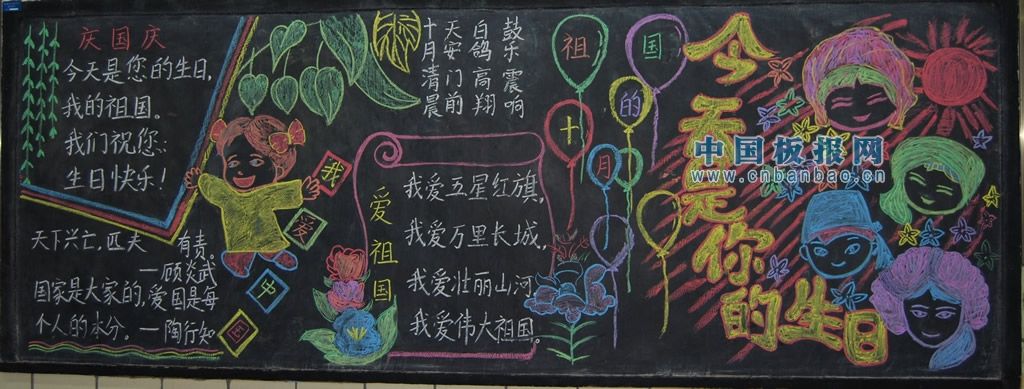 庆国庆
今天是您的生日,
我的祖国。
我们祝您:
生日快乐!
天下兴亡,匹夫 有责。
—顾炎武
国家是大家的,爱国是每
个人的本分。—陶行知
我
爱
中
国
十月清晨
天安门前
白鸽高翔
鼓乐震响
爱祖国
我爱五星红旗,
我爱万里长城,
我爱壮丽山河
我爱伟大祖国。
祖
国
的
十
月
今天是你的生日
中国板报网
www.cnbanbao.cn